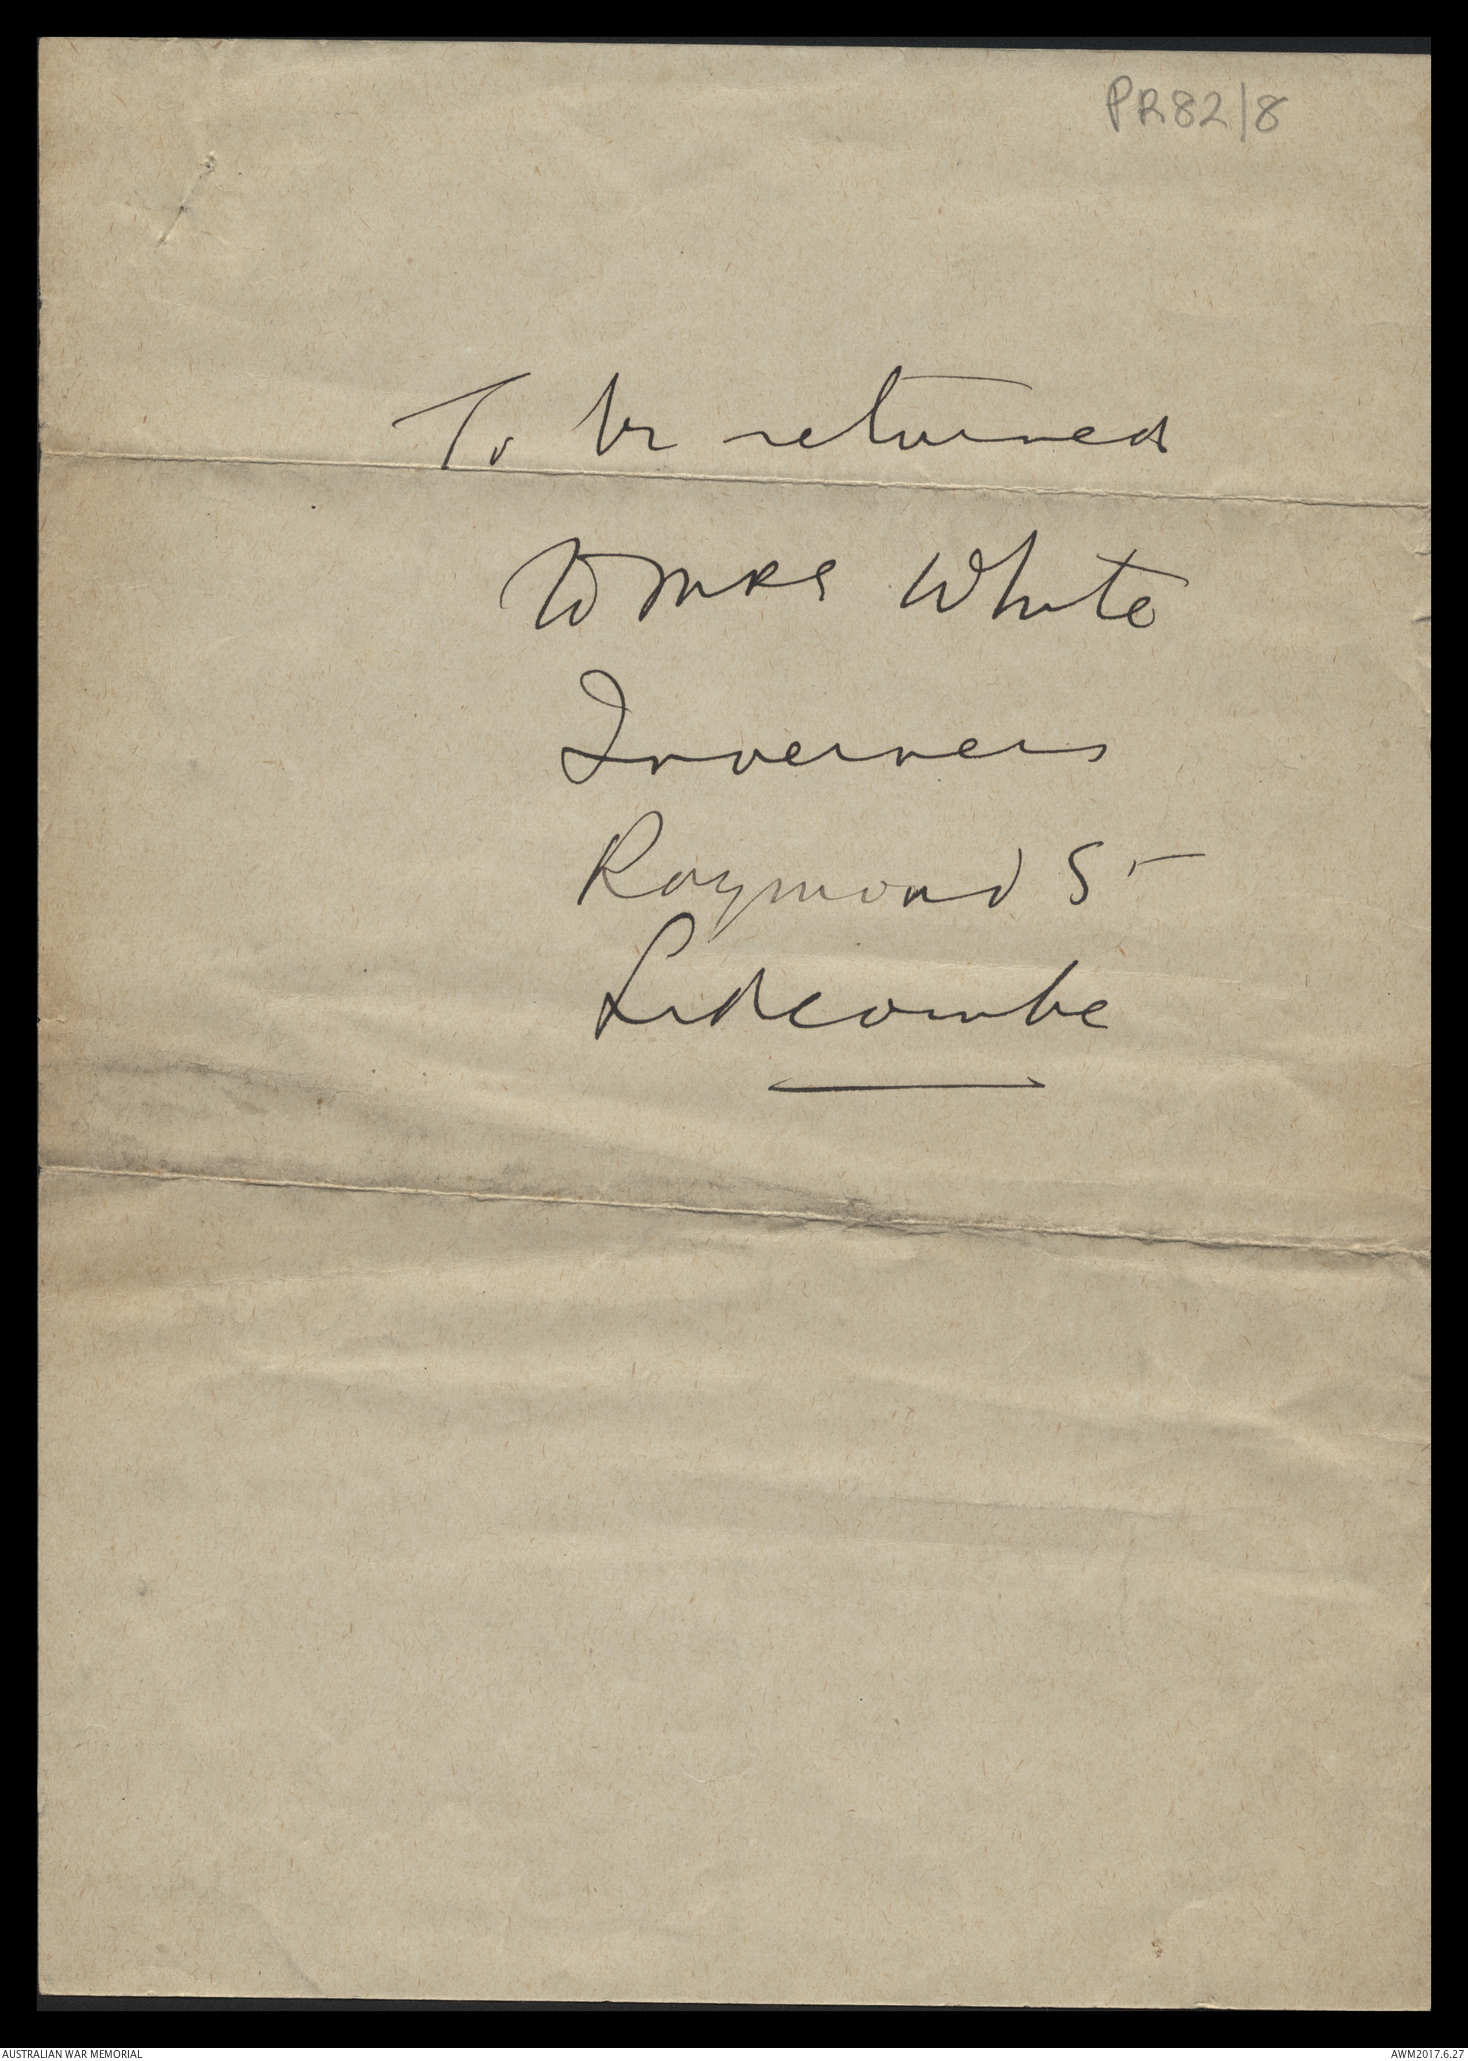 PR82/8
To be returned
to Mrs White
Inverness
Raymond St
Lidcombe
AUSTRALIAN WAR MEMORIAL
AWM2017.6.27